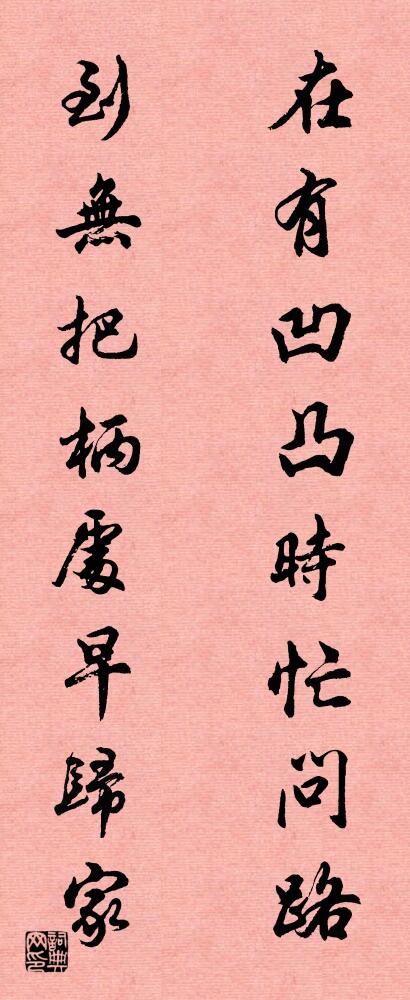 在有凹凸時忙問路
到無把柄處早歸家
詞典網印